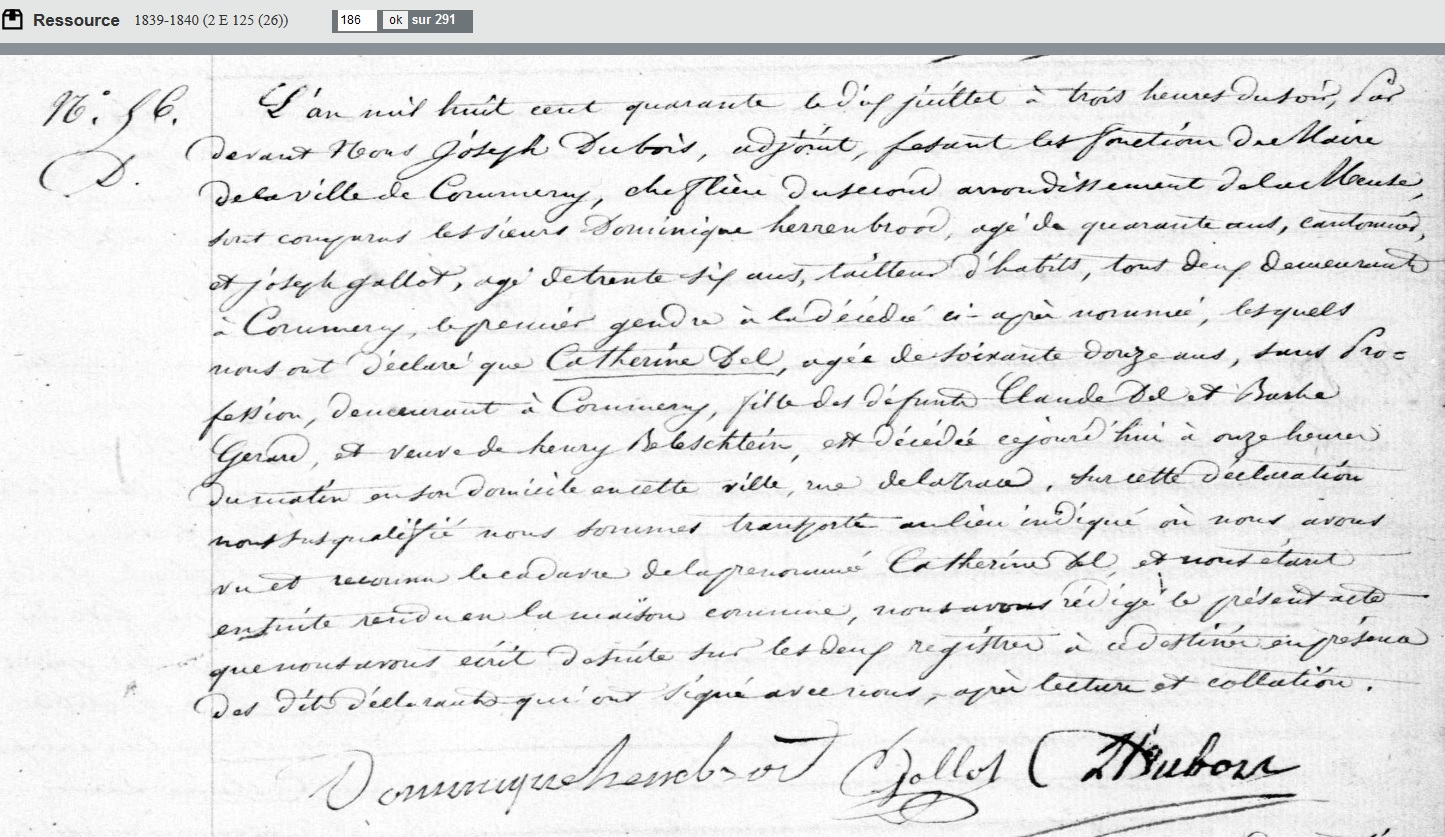 Ressource 1839-1840 (2 E 125 (26)) 186 ok sur 291
N.° 56.
D.
L'an mil huit cent quarante le dix juillet à trois heures du soir, Par
devant Nous Joseph Dubois, adjoint, fesant les fonction de Maire
de la ville de Commercy, chef lieu du second arrondissement de la Meuse
sont comparus les sieurs Dominique herrenbrood, agé de quarante ans, cantonnier,
et joseph gallot, agé de trente six ans, tailleur d'habits, tous deux demeurants
à Commercy, le premier gendre à la décédée ci-après nommée, lesquels
nous ont déclaré que Catherine Del, agée de soixante douze ans, sans Pro=
fession, demeurant à Commercy, fille des défunts Claude Del et Barbe
Gerard, et veuve de henry Beleschtein, est décédée cejourd'hui à onze heures
du matin en son domicile en cette ville, rue de la place, sur cette déclaration
nous susqualifié nous sommes transporté au lieu indiqué où nous avons
vu et reconnu le cadavre de la prenommée Catherine Del, et nous etant
ensuite rendu en la maison commune, nous avons rédigé le présent acte
que nous avons ecrit de suite sur les deux registres à ce destinés en présence
des dits déclarants qui ont signé avec nous, après lecture et collation.
Dominique Gallot Dubois